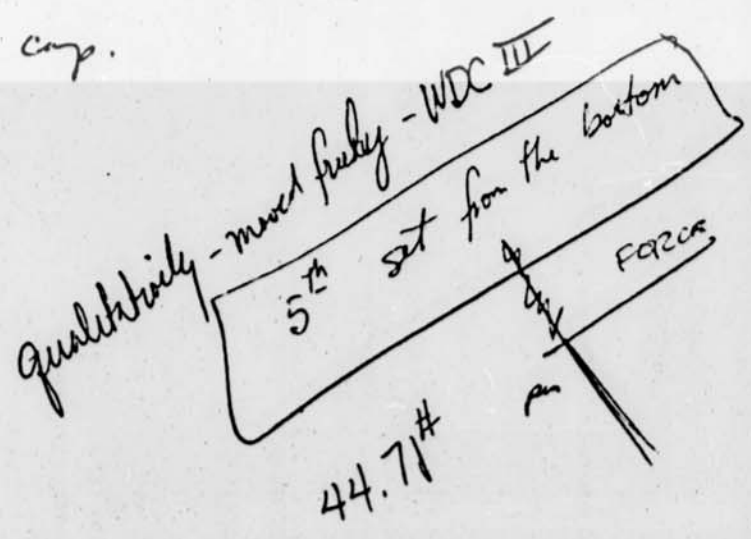 comp.
qualitatively - moved freely - WDC III
5th set from the bottom
FORCE
pin
44.71#